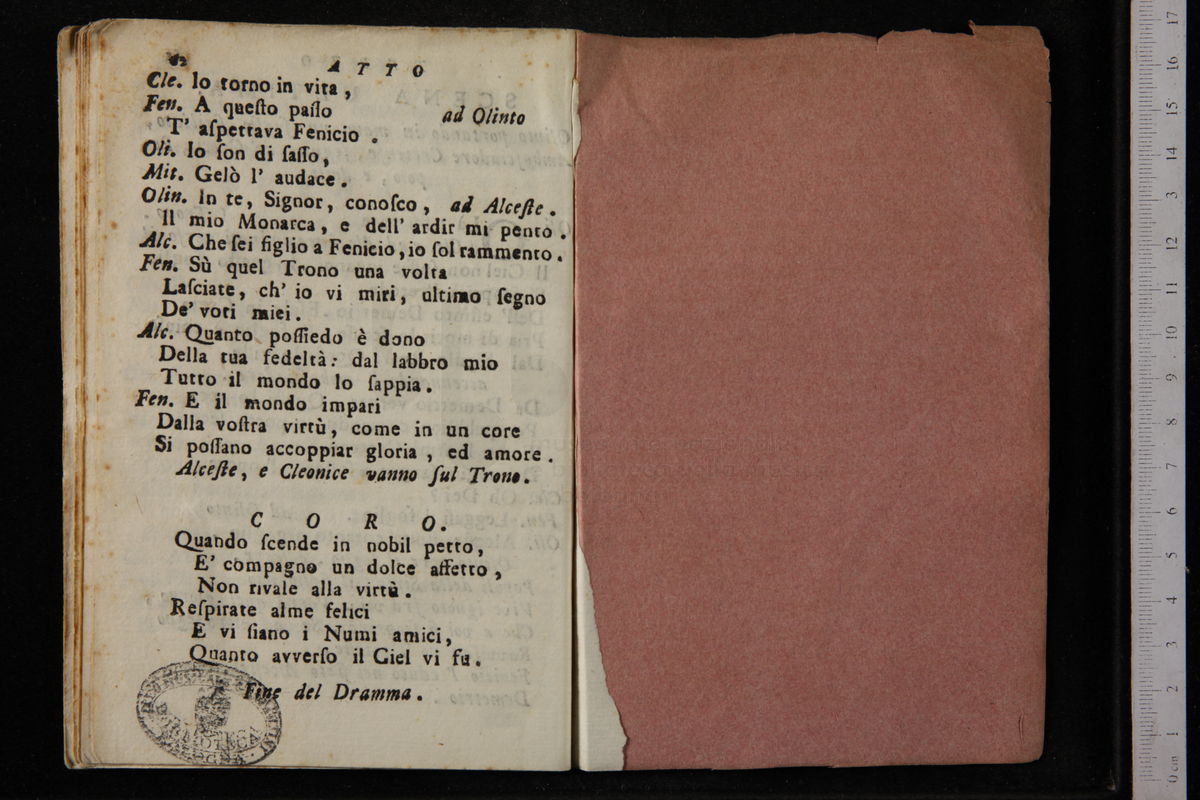 62 ATTO
Cle. Io torno in vita,
Fen. A queſto paſſo ad Olinto
T' aſpettava Fenicio.
Oli. Io ſon di ſaſſo,
Mit. Gelò l' audace.
Olin. In te, Signor, conoſco, ad Alceſte.
Il mio Monarca, e dell' ardir mi pento.
Alc. Che ſei figlio a Fenicio, io ſol rammento.
Fen. Sù quel Trono una volta
Laſciate, ch' io vi miri, ultimo ſegno
De' voti miei.
Alc. Quanto poſſiedo è dono
Della tua fedeltà: dal labbro mio
Tutto il mondo lo ſappia.
Fen. E il mondo impari
Dalla voſtra virtù, come in un core
Si poſſano accoppiar gloria, ed amore.
Alceſte, e Cleonice vanno ſul Trono.
CORO.
Quando ſcende in nobil petto,
E' compagno un dolce affetto,
Non rivale alla virtù.
Reſpirate alme felici
E vi ſiano i Numi amici,
Quanto avverſo il Ciel vi fu.
Fine del Dramma.
BIBLIOTECA
0 cm 1 2 3 4 5 6 7 8 9 10 11 12 13 14 15 16 17